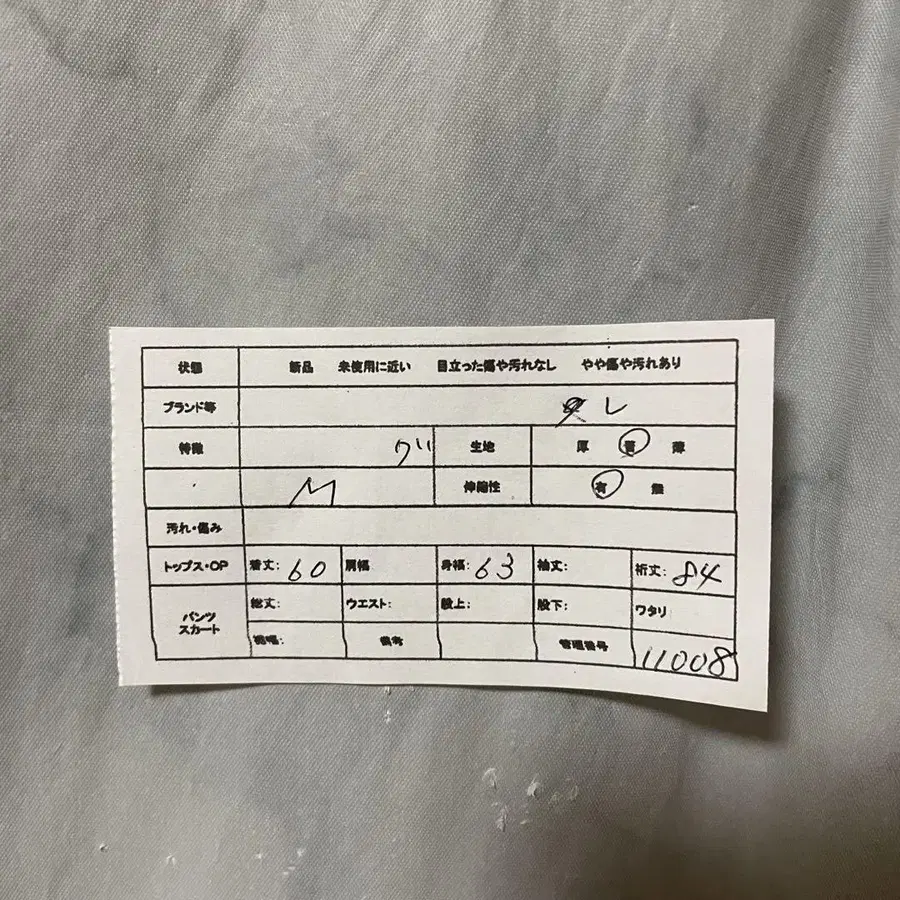 状態 新品 未使用に近い 目立った傷や汚れなし やや傷や汚れあり
ブランド等 レ
特徴 生地 厚 普 薄
M 伸縮性 有 無
汚れ・傷み
トップス・OP 着丈: 60 肩幅 身幅: 63 袖丈: 裄丈: 84
パンツ スカート 総丈: ウエスト: 股上: 股下: ワタリ
裾幅: 備考 管理番号 11008